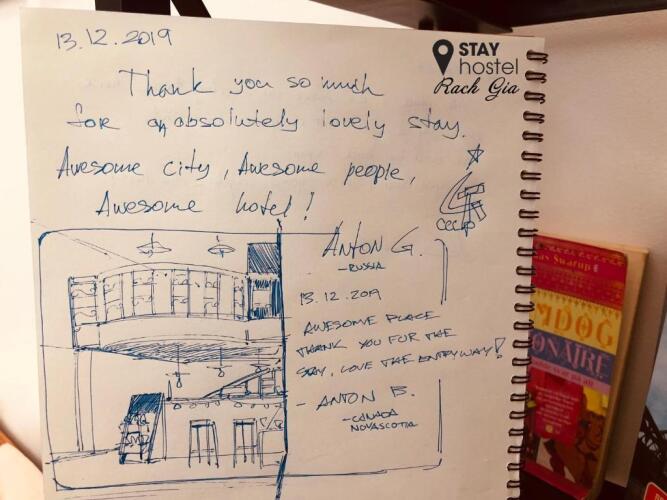 13.12.2019
STAY
hostel
Rach Gia
Thank you so much
for an absolutely lovely stay.
Awesome city, Awesome people,
Awesome hotel!
ANTON G.
- RUSSIA
13.12.2019
AWESOME PLACE
THANK YOU FOR THE
STAY, LOVE THE ENTRYWAY!
- ANTON B.
- CANADA
NOVASCOTIA
as Swarup
MDOG
ONAIRE